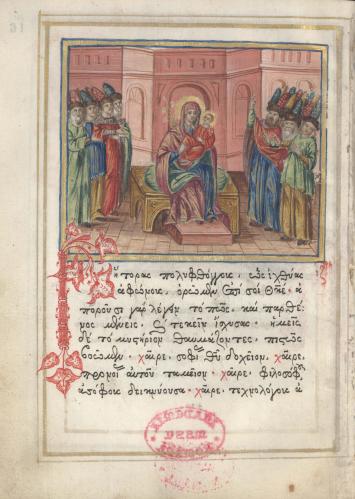 Ῥήτορας πολυφθόγγους, ὡς ἰχθύας
ἀφώνους, ὁρῶμεν ἐπὶ σοὶ Θκε· ἀ
ποροῦσι γὰρ λέγειν τὸ πῶς, καὶ παρθέ
νος μένεις, καὶ τεκεῖν ἴσχυσας· ἡμεῖς
δὲ τὸ μυστήριον θαυμάζοντες, πιστῶς
βοῶμεν· χαῖρε, σοφίας Θυ δοχεῖον, χαῖρε,
προνοίας αὐτοῦ ταμεῖον· χαῖρε, φιλοσόφους
ἀσόφους δεικνύουσα· χαῖρε, τεχνολόγους ἀ